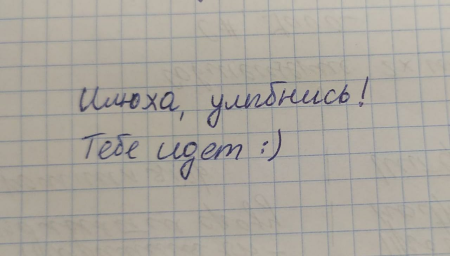 Илюха, улыбнись!
Тебе идет :)